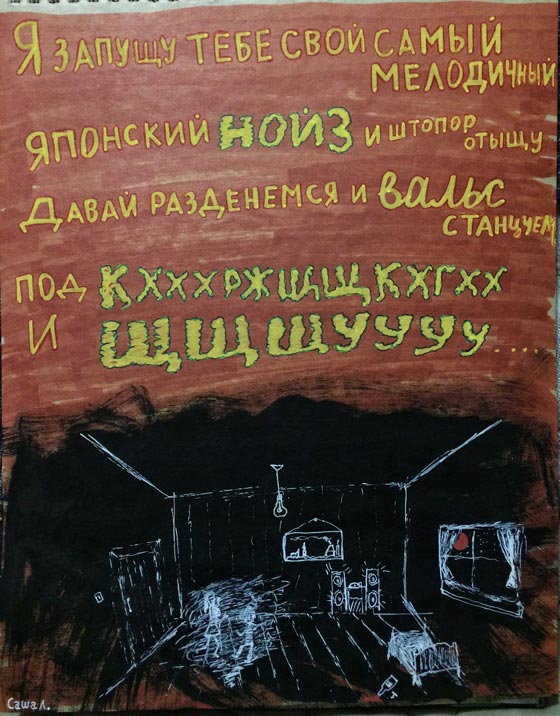 Я ЗАПУЩУ ТЕБЕ СВОЙ САМЫЙ
МЕЛОДИЧНЫЙ
ЯПОНСКИЙ НОЙЗ И ШТОПОР
ОТЫЩУ
ДАВАЙ РАЗДЕНЕМСЯ И ВАЛЬС
СТАНЦУЕМ
ПОД КХХХРЖЩЩКХГХХ
И ЩЩЩУУУУУ....
Саша Л.